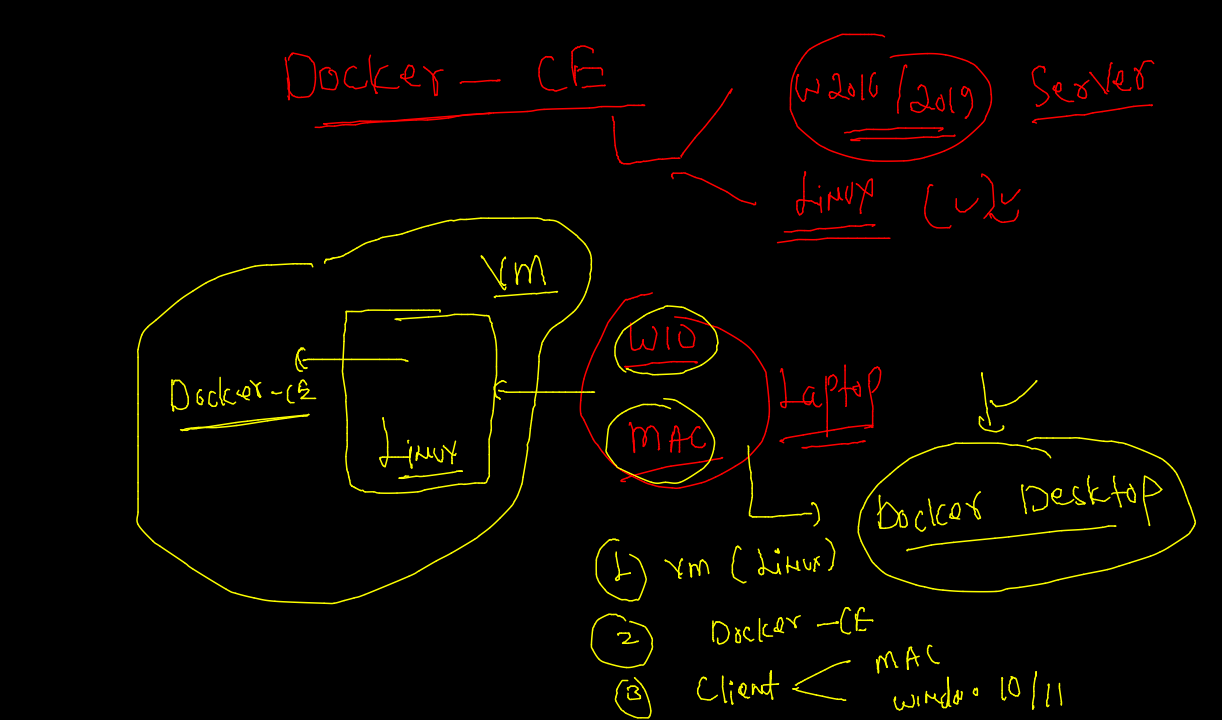 Docker - CE
W2016/2019 Server
Linux
VM
Docker-CE
Linux
W10
MAC
Laptop
Docker Desktop
1 VM (Linux)
2 Docker-CE
3 Client
MAC
10/11